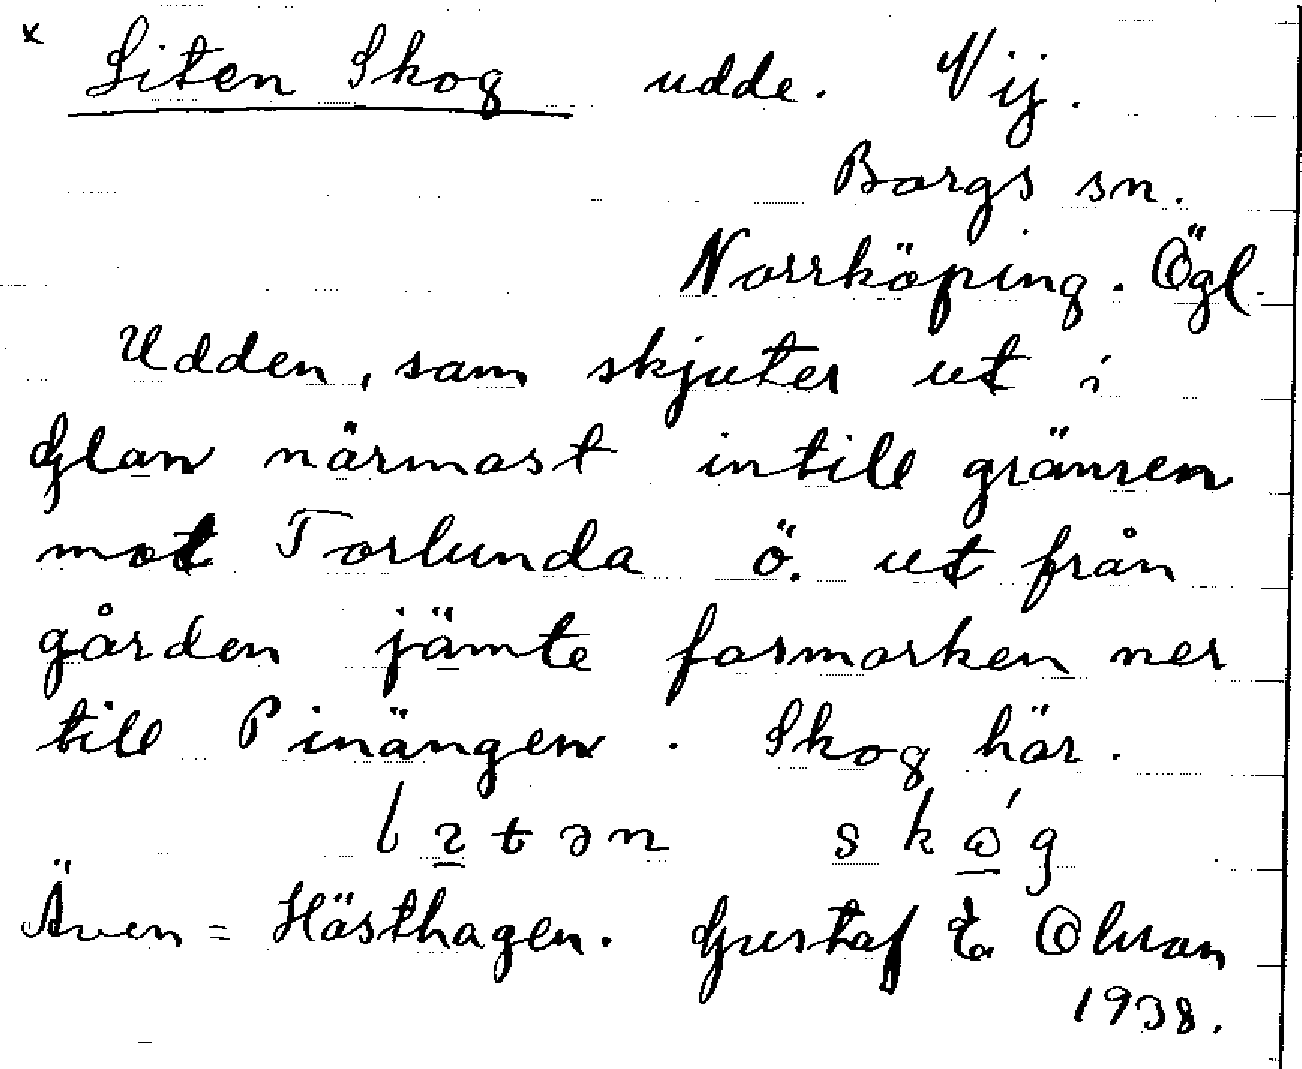 x Liten Skog udde. Vij.
Borgs sn.
Norrköping. Ögl.
Udden, som skjuter ut i
Glan närmast intill gränsen
mot Torlunda ö. ut från
gården jämte farmarken ner
till Pinängen. Skog här.
Även = Hästhagen. Gustaf E. Olsson
1938.